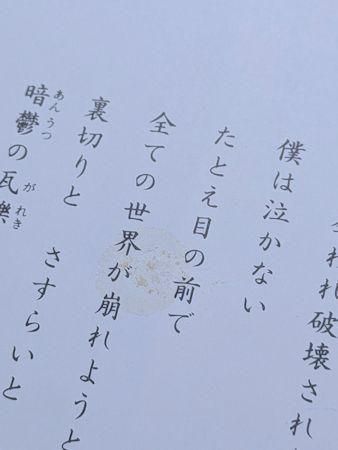 われ破壊され
僕は泣かない
たとえ目の前で
全ての世界が崩れようと
裏切りと　さすらいと
暗鬱の瓦礫
あんうつ
がれき